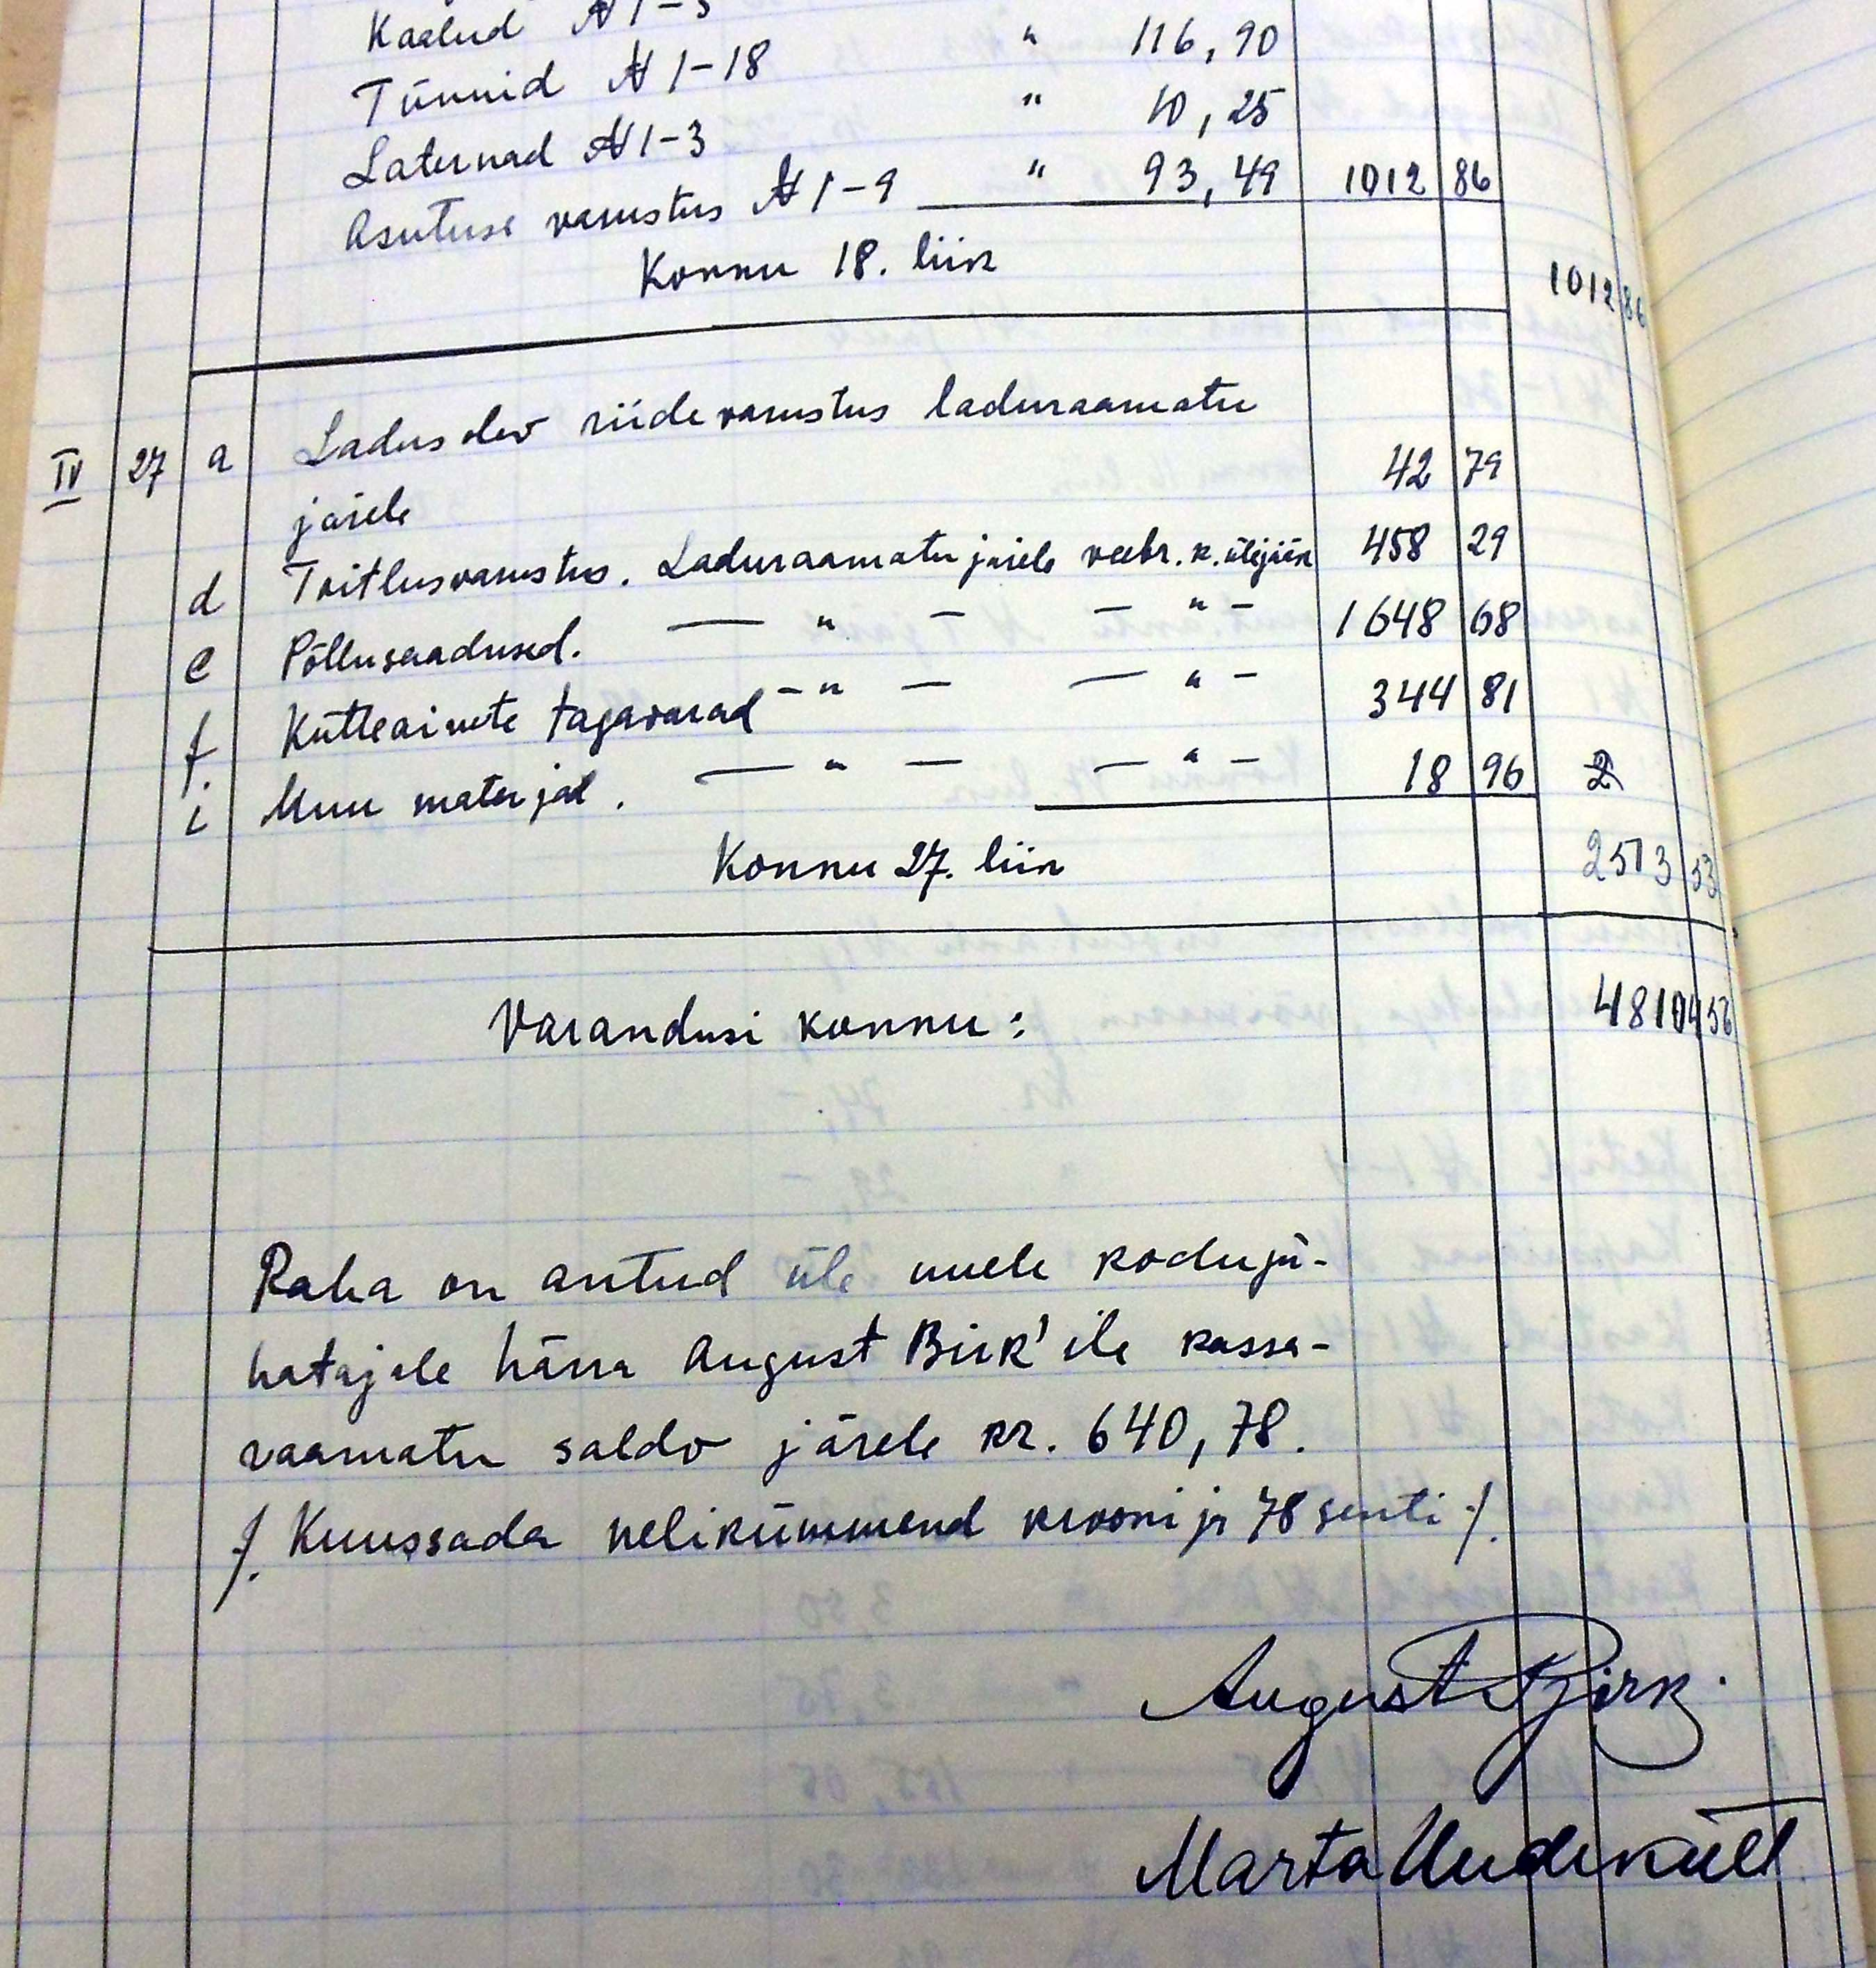 Kaalud № 1-3
Tünnid № 1-18 " 116,90
Laternad № 1-3 " 10,25
Asutuse varustus № 1-9 " 93,49 1012 86
Kokku 18. liik 1012 86
IV 27 a Ladus olev riidevarustus laduraamatu
järele 42 79
d Toitlusvarustus. Laduraamatu järele veebr. k. ülejääk 458 29
e Põllusaadused. — " — — " — 1648 68
f. Kütteainete tagavarad — " — — " — 344 81
i Muu materjal. — " — — " — 18 96
Kokku 27. liik 2513 53
Varandusi kokku: 48104 56
Raha on antud üle uuele koduju-
hatajale härra August Birk'ile kassa-
raamatu saldo järele kr. 640,78.
/. Kuussada nelikümmend krooni ja 78 senti /.
August Birk.
Marta Uudeküll